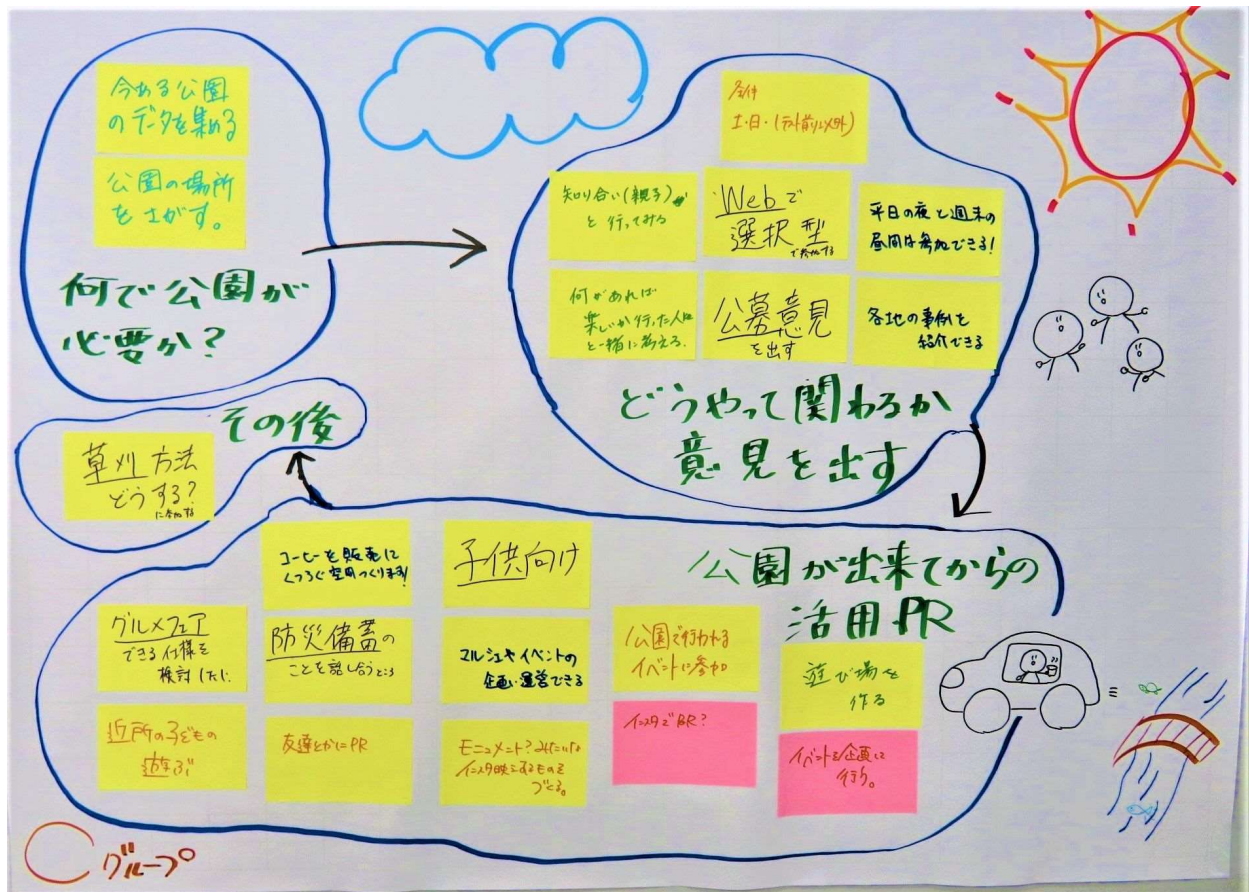 今ある公園
のデータを集める
公園の場所
をさがす。
何で公園が
必要か?
全件
土・日・(テスト前以外)
知り合い(親子)
と行ってみる
Webで
選択型
で参加する
平日の夜と週末の
昼間は参加できる!
何があれば
楽しいか行った人は
と一緒に考える。
公募意見
を出す
各地の事例を
紹介できる
どうやって関わるか
意見を出す
その後
草刈方法
どうする?
に参加する
公園が出来てからの
活用PR
コーヒーを販売し
くつろぐ空間つくります!
子供向け
グルメフェア
できる仕様を
検討したい
防災備蓄の
ことを話し合うところ
マルシェやイベントの
企画・運営できる
公園で行われる
イベントに参加
遊び場を
作る
近所の子どもの
遊ぶ
友達とかにPR
モニュメント?みたいな
インスタ映えするものを
つくる。
インスタでPR?
イベントを企画して
行う。
Cグループ